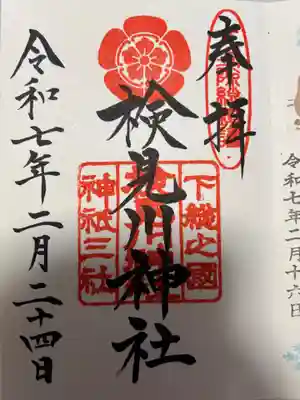 奉拝
検見川神社
下総之國
神社三社
令和七年二月二十四日
令和七年二月十六日